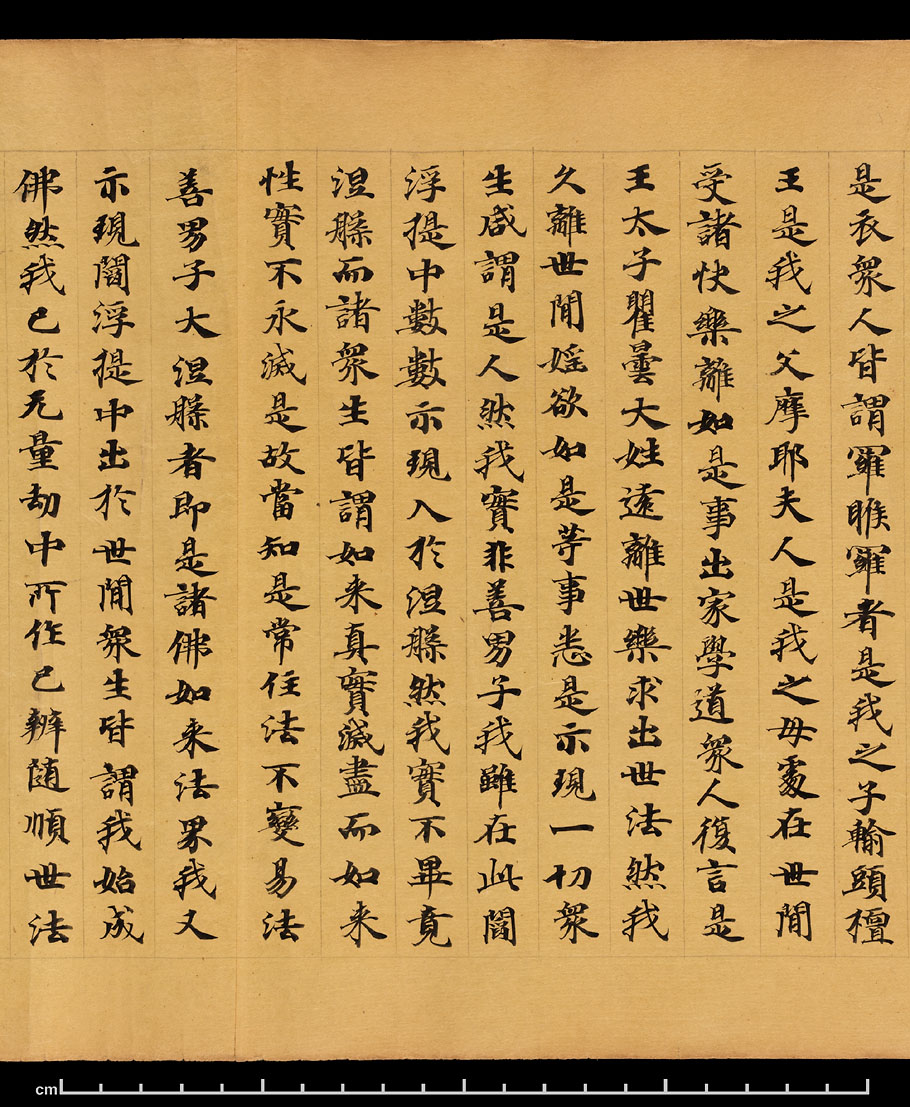 是衣衆人皆謂羅睺羅者是我之子輸頭檀
王是我之父摩耶夫人是我之母處在世間
受諸快樂離如是事出家學道衆人復言是
王太子瞿曇大姓遠離世樂求出世法然我
久離世閒婬欲如是等事悉是示現一切衆
生咸謂是人然我實非善男子我雖在此閻
浮提中數數示現入於涅槃然我實不畢竟
涅槃而諸衆生皆謂如来真實滅盡而如来
性實不永滅是故當知是常住法不變易法
善男子大涅槃者即是諸佛如来法界我又
示現閻浮提中出於世閒衆生皆謂我始成
佛然我已於无量劫中所作已辦随順世法
cm